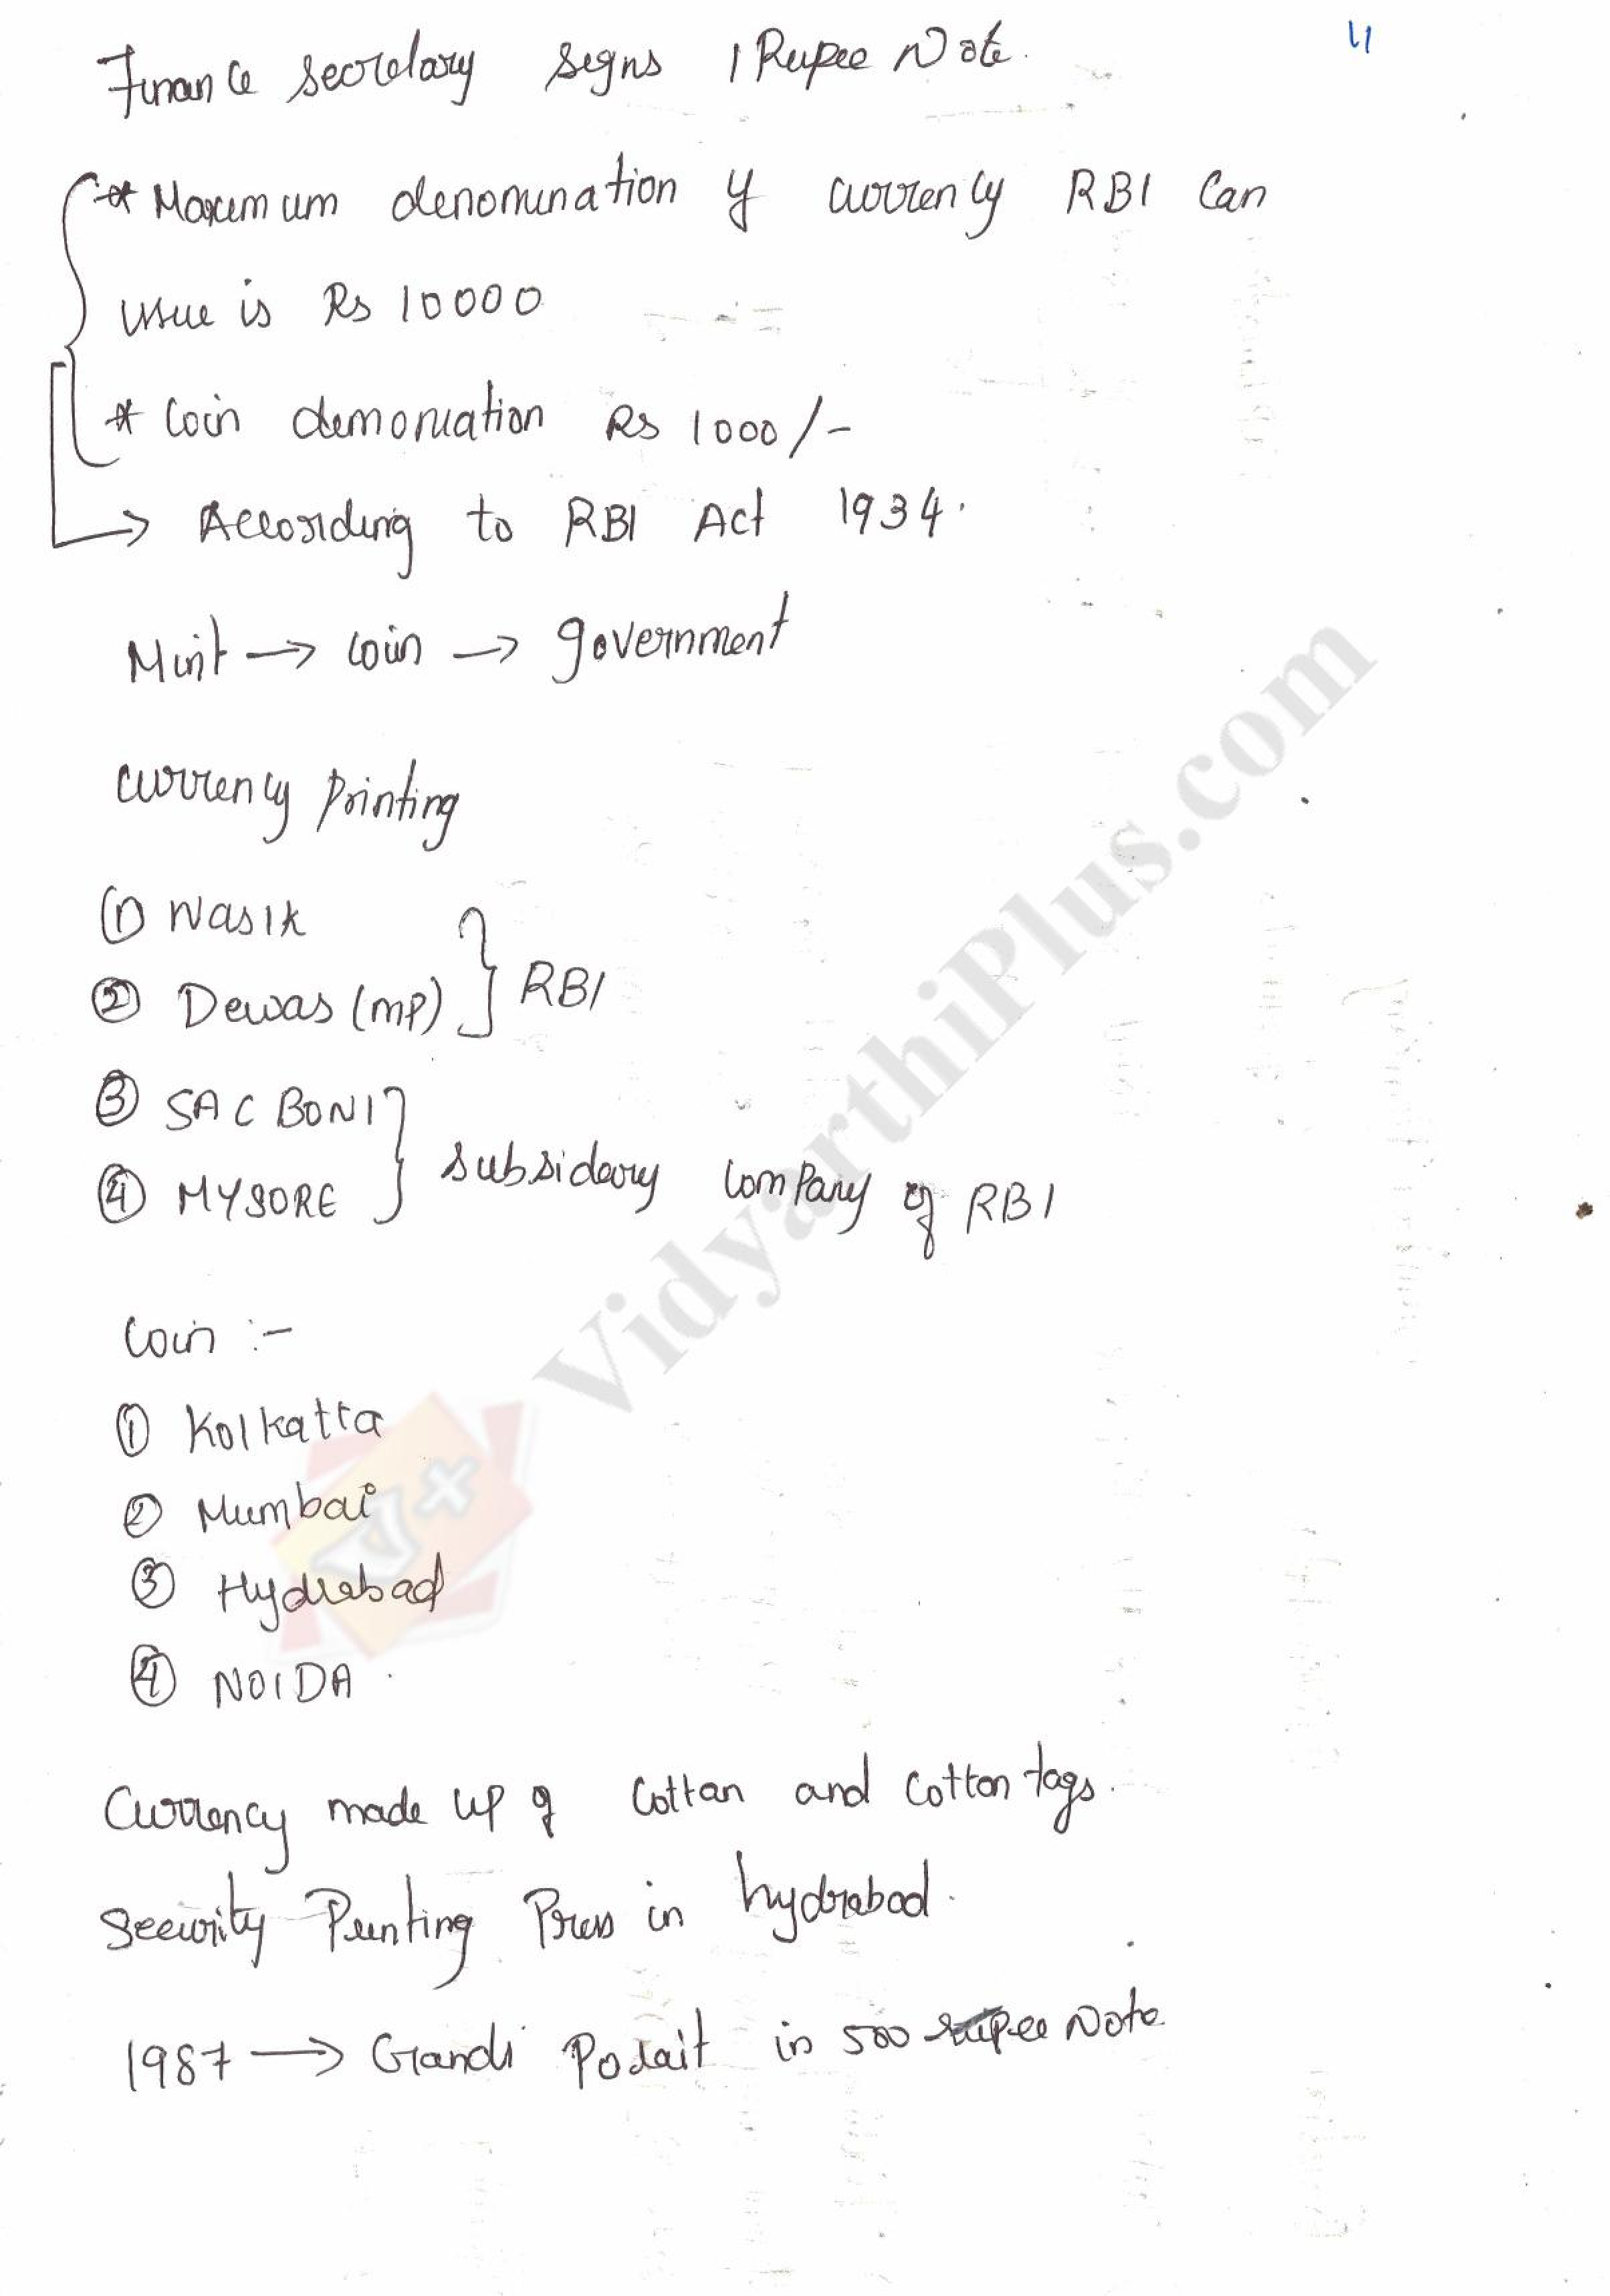 4
Finance secretary signs 1 Rupee Note.
* Maximum denomination of currency RBI Can
issue is Rs 10000
* Coin demoniation Rs 1000/-
→ According to RBI Act 1934.
Mint → coin → government
Currency printing
① Nasik
② Dewas (MP) } RBI
③ SAC BONI
④ MYSORE } subsideary company of RBI
Coin :-
① Kolkatta
② Mumbai
③ Hydrabad
④ NOIDA
Currency made up of Cottan and Cotton tags.
Security Printing Press in hydrabad.
1987 → Grandi Podait in 500 rupee Note
VidyarthiPlus.com
V+